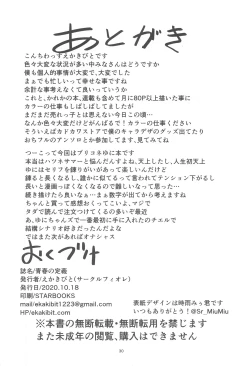 あとがき
こんちわっすえかきびとです
色々大変な状況が多い中みなさんはどうですか
僕も個人的事情が大変で、大変でした
まぁでも忙しいって幸せな事ですね
余計な事考えなくて良いっていうか
これと、かれかの本、連載も含めて月に80P以上描いた事に
カラーの仕事もしばしばしてましたが
まだまだ売れっ子とは思えない今日この頃…
なんか色々大変だけどがんばるで!カラーの仕事ください
そういえばカドカワストアで僕のキャラデザのグッズ出てたり
おちフルのアンソロとか参加してます、見てみてね
つーこって今回はプリコネゆにです
本当はハツネサマーと悩んだんすよね、天上したし、人生初天上
ゆにはセリフを語りがいがあって楽しいんだけど
語ると長くなるし、誰か話しているって言われてテンション下がるし
長いと漫画っぽくなくなるので難しいなって思った…
続き描けたら良いなぁ…まぁ数字が出ればですけど
コメント、皆思ったより書いてくっていこな、マジで
タダで読んで注文つけてくるの多いで最近
あ、ゆにちゃんで一番最初に手に入れたのチエルで
結構シナリオ好きだったんだよな
ではまた次があればオナシャス
おくづけ
誌名/青春の定義
発行者/えかきびと(サークルフィオレ)
発行日/2020.10.18
印刷/STARBOOKS
mail/ekakibit1223@gmail.com
HP/ekakibit.com
表紙デザインは時雨みぅ君です
いつもありがとう!@Sr_MiuMiu
※本書の無断転載・無断転用を禁じます
また未成年の閲覧、購入はできません
30